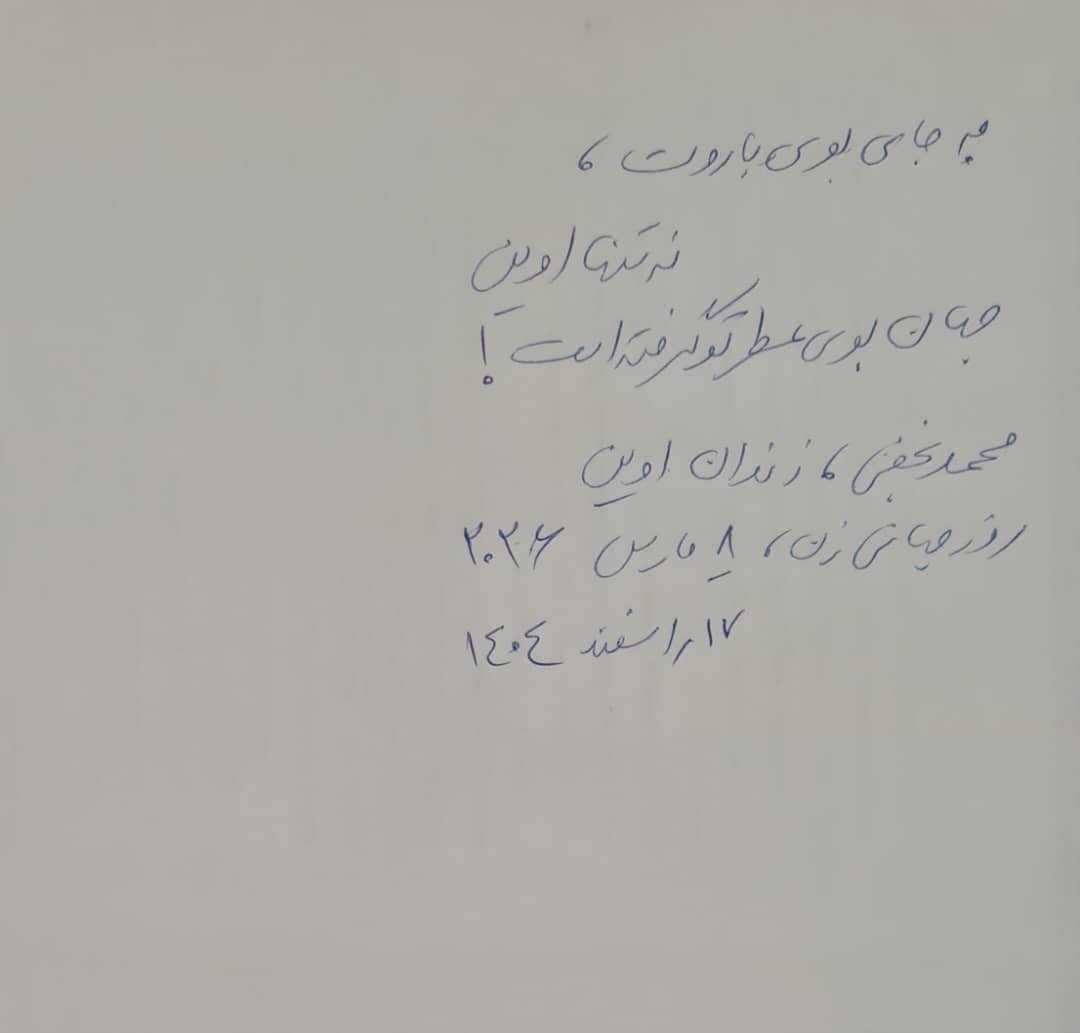 به جای بوی باروت،
نه تنها اوین
جهان بوی عطر تو گرفته است!
محمد نجفی، زندان اوین
روز جهانی زن، ۸ مارس ۲۰۲۶
۱۷ اسفند ۱۴۰۴